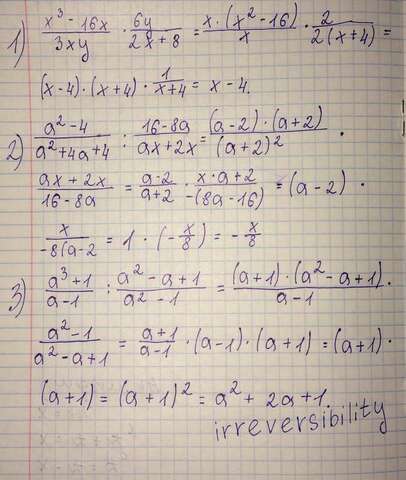 1) (x³ - 16x)/(3xy) · (6y)/(2x + 8) = (x · (x² - 16))/x · 2/(2(x + 4)) =
(x - 4) · (x + 4) · 1/(x + 4) = x - 4.
2) (a² - 4)/(a² + 4a + 4) : (16 - 8a)/(ax + 2x) = ((a - 2) · (a + 2))/(a + 2)² ·
(ax + 2x)/(16 - 8a) = (a - 2)/(a + 2) · (x · a + 2)/(-(8a - 16)) = (a - 2) ·
x/(-8(a - 2) = 1 · (-x/8) = -x/8
3) (a³ + 1)/(a - 1) : (a² - a + 1)/(a² - 1) = ((a + 1) · (a² - a + 1))/(a - 1) ·
(a² - 1)/(a² - a + 1) = (a + 1)/(a - 1) · (a - 1) · (a + 1) = (a + 1) ·
(a + 1) = (a + 1)² = a² + 2a + 1.
irreversibility